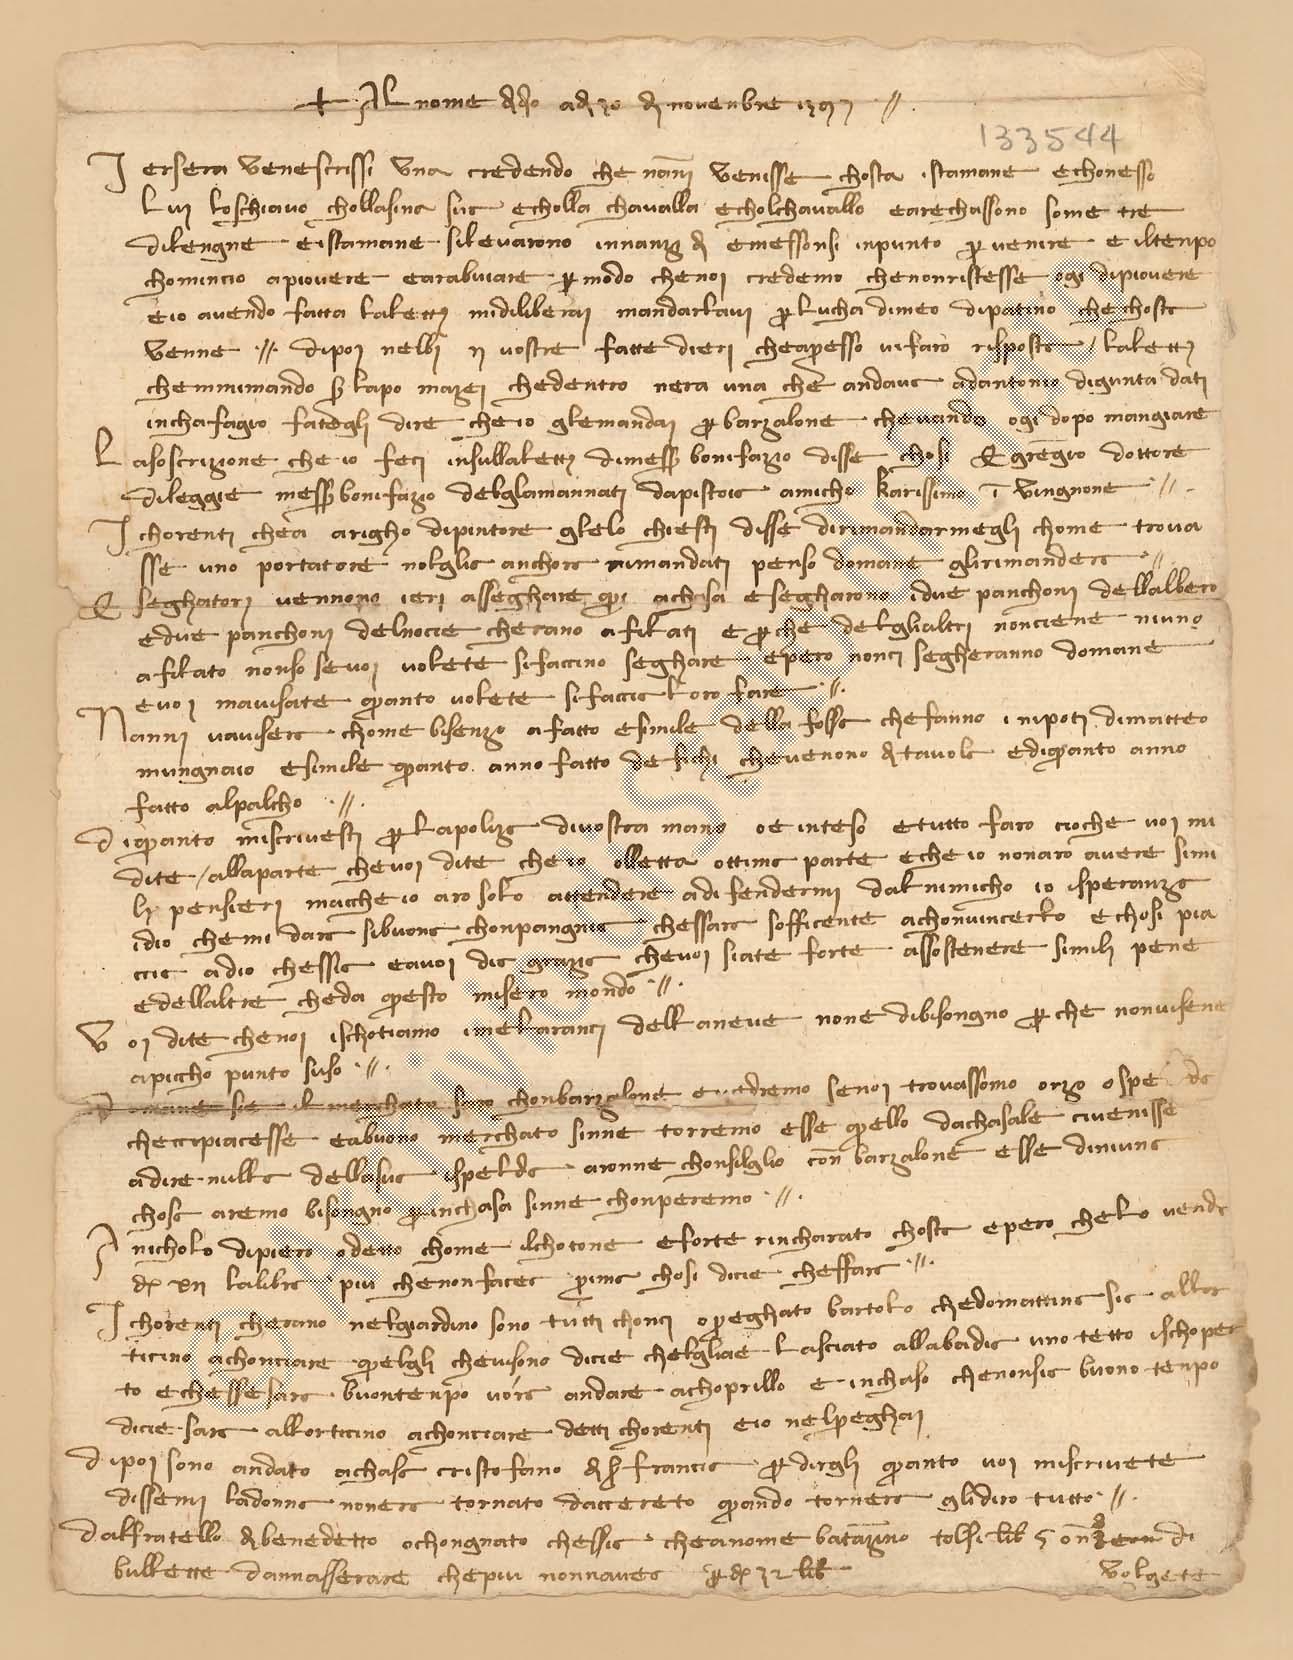 + Al nome di dio adi 30 di novenbre 1397 //.
133544
Iersera venescrissi una credendo che nanni venisse chosta istamane echonesso
lui loschiavo chollasina sua echolla chavalla echolchavallo earechassono some tre
dilengne eistamane silevarono innanzi di emessonsi inpunto per venire e iltenpo
chomincio apiovere earabuiare per modo chenoi credemo chenonristesse ogi dipiovere
eio avendo fatta lalettera midiliberai mandarlavi per lucha dimeo dipatino che chosta
venne // dipoi nebbi vostre fatte dieri cheapresso vifaro risposta / lalettera
chemmimando ser lapo mazei chedentro nera una che andava adantonio digunta dati
inchafagio fategli dire cheio glemandai per barzalone chevando ogi dopo mangiare
Lasoscrizione che io feci insullalettera dimesser bonifazio disse chosi Egregio dottore
dileggie messer bonifazio delglamannati dapistoia amicho karissimo i vingnone //.
Ichorenti chea arigho dipintore glelo chiesti disse dirimandarmegli chome trova
sse uno portatore nolglia anchora rimandati penso domane glirimandera //
E seghatori vennono ieri asseghare qui achasa esegharono idue panchoni dellalbero
edue panchoni delnocie cherano afilati e perche delglialtri nonciene niuno
afilato nonso sevoi volete sifaccino seghare epero nonci segheranno domane
evoi mavisate quanto volete sifaccia loro fare //.
Nanni vavisera chome bisenzo afatto esimile della fossa chefanno i nipoti dimatteo
mungnaio esimile quanto anno fatto defichi chevenono di tavola ediquanto anno
fatto alpalcho //.
diquanto miscrivesti per lapoliza divostra mano oe inteso etutto faro cioche voi mi
dite / allaparte chevoi dite che io olletta ottima parte eche io nonaro avere simi
li pensieri macche io aro solo attendere adifendermi dalnimicho io isperanza
idio chemi dara sibuona chonpangnia chessara sofficente achonvincerlo echosi pia
ccia adio chessia eavoi dia grazia chevoi siate forte assostenere simili pene
edellaltre cheda questo misero mondo //.
Voi dite chenoi ischotiamo imelaranci dellaneve none dibisongno perche nonvisene
apiccho punto suso //.
Domane sie il merchato saro chonbarzalone evedremo senoi trovassomo orzo o spelda
checcipiacesse eabuono merchato sinne torremo esse quello dachasale civenisse
adire nulla dellasua ispelda aronne chonsilglio con barzalone esse diniuna
chosa aremo bisongno per inchasa sinne chonperemo //.
A nicholo dipiero odetto chome ilchotone eforte rincharato chosta epero chelo venda
lalibra piu chenonfacea prima chosi dicie cheffara //.
Ichorenti cherano nelgiardino sono tutti chonci opreghato bartolo chedomattina sia allor
ticino achonciare quelgli chevisono dicie chelgliae lasciato allabadia uno tetto ischoper
to echessesara buontenpo vora andare achoprillo e inchaso chenonsia buono tenpo
dicie sara allorticino achonciare detti chorenti eio nelpreghai
dipoi sono andato achasa cristofano di ser francia per dirgli quanto voi miscrivete
dissemi ladonna nonera tornato daccereto quando tornera glidiro tutto //.
dalfratello di benedetto ochongnato chessia cheanome batazino tolsi lib 5 on di
bullette dannasserare chepiu nonnavea per lib
Volgete